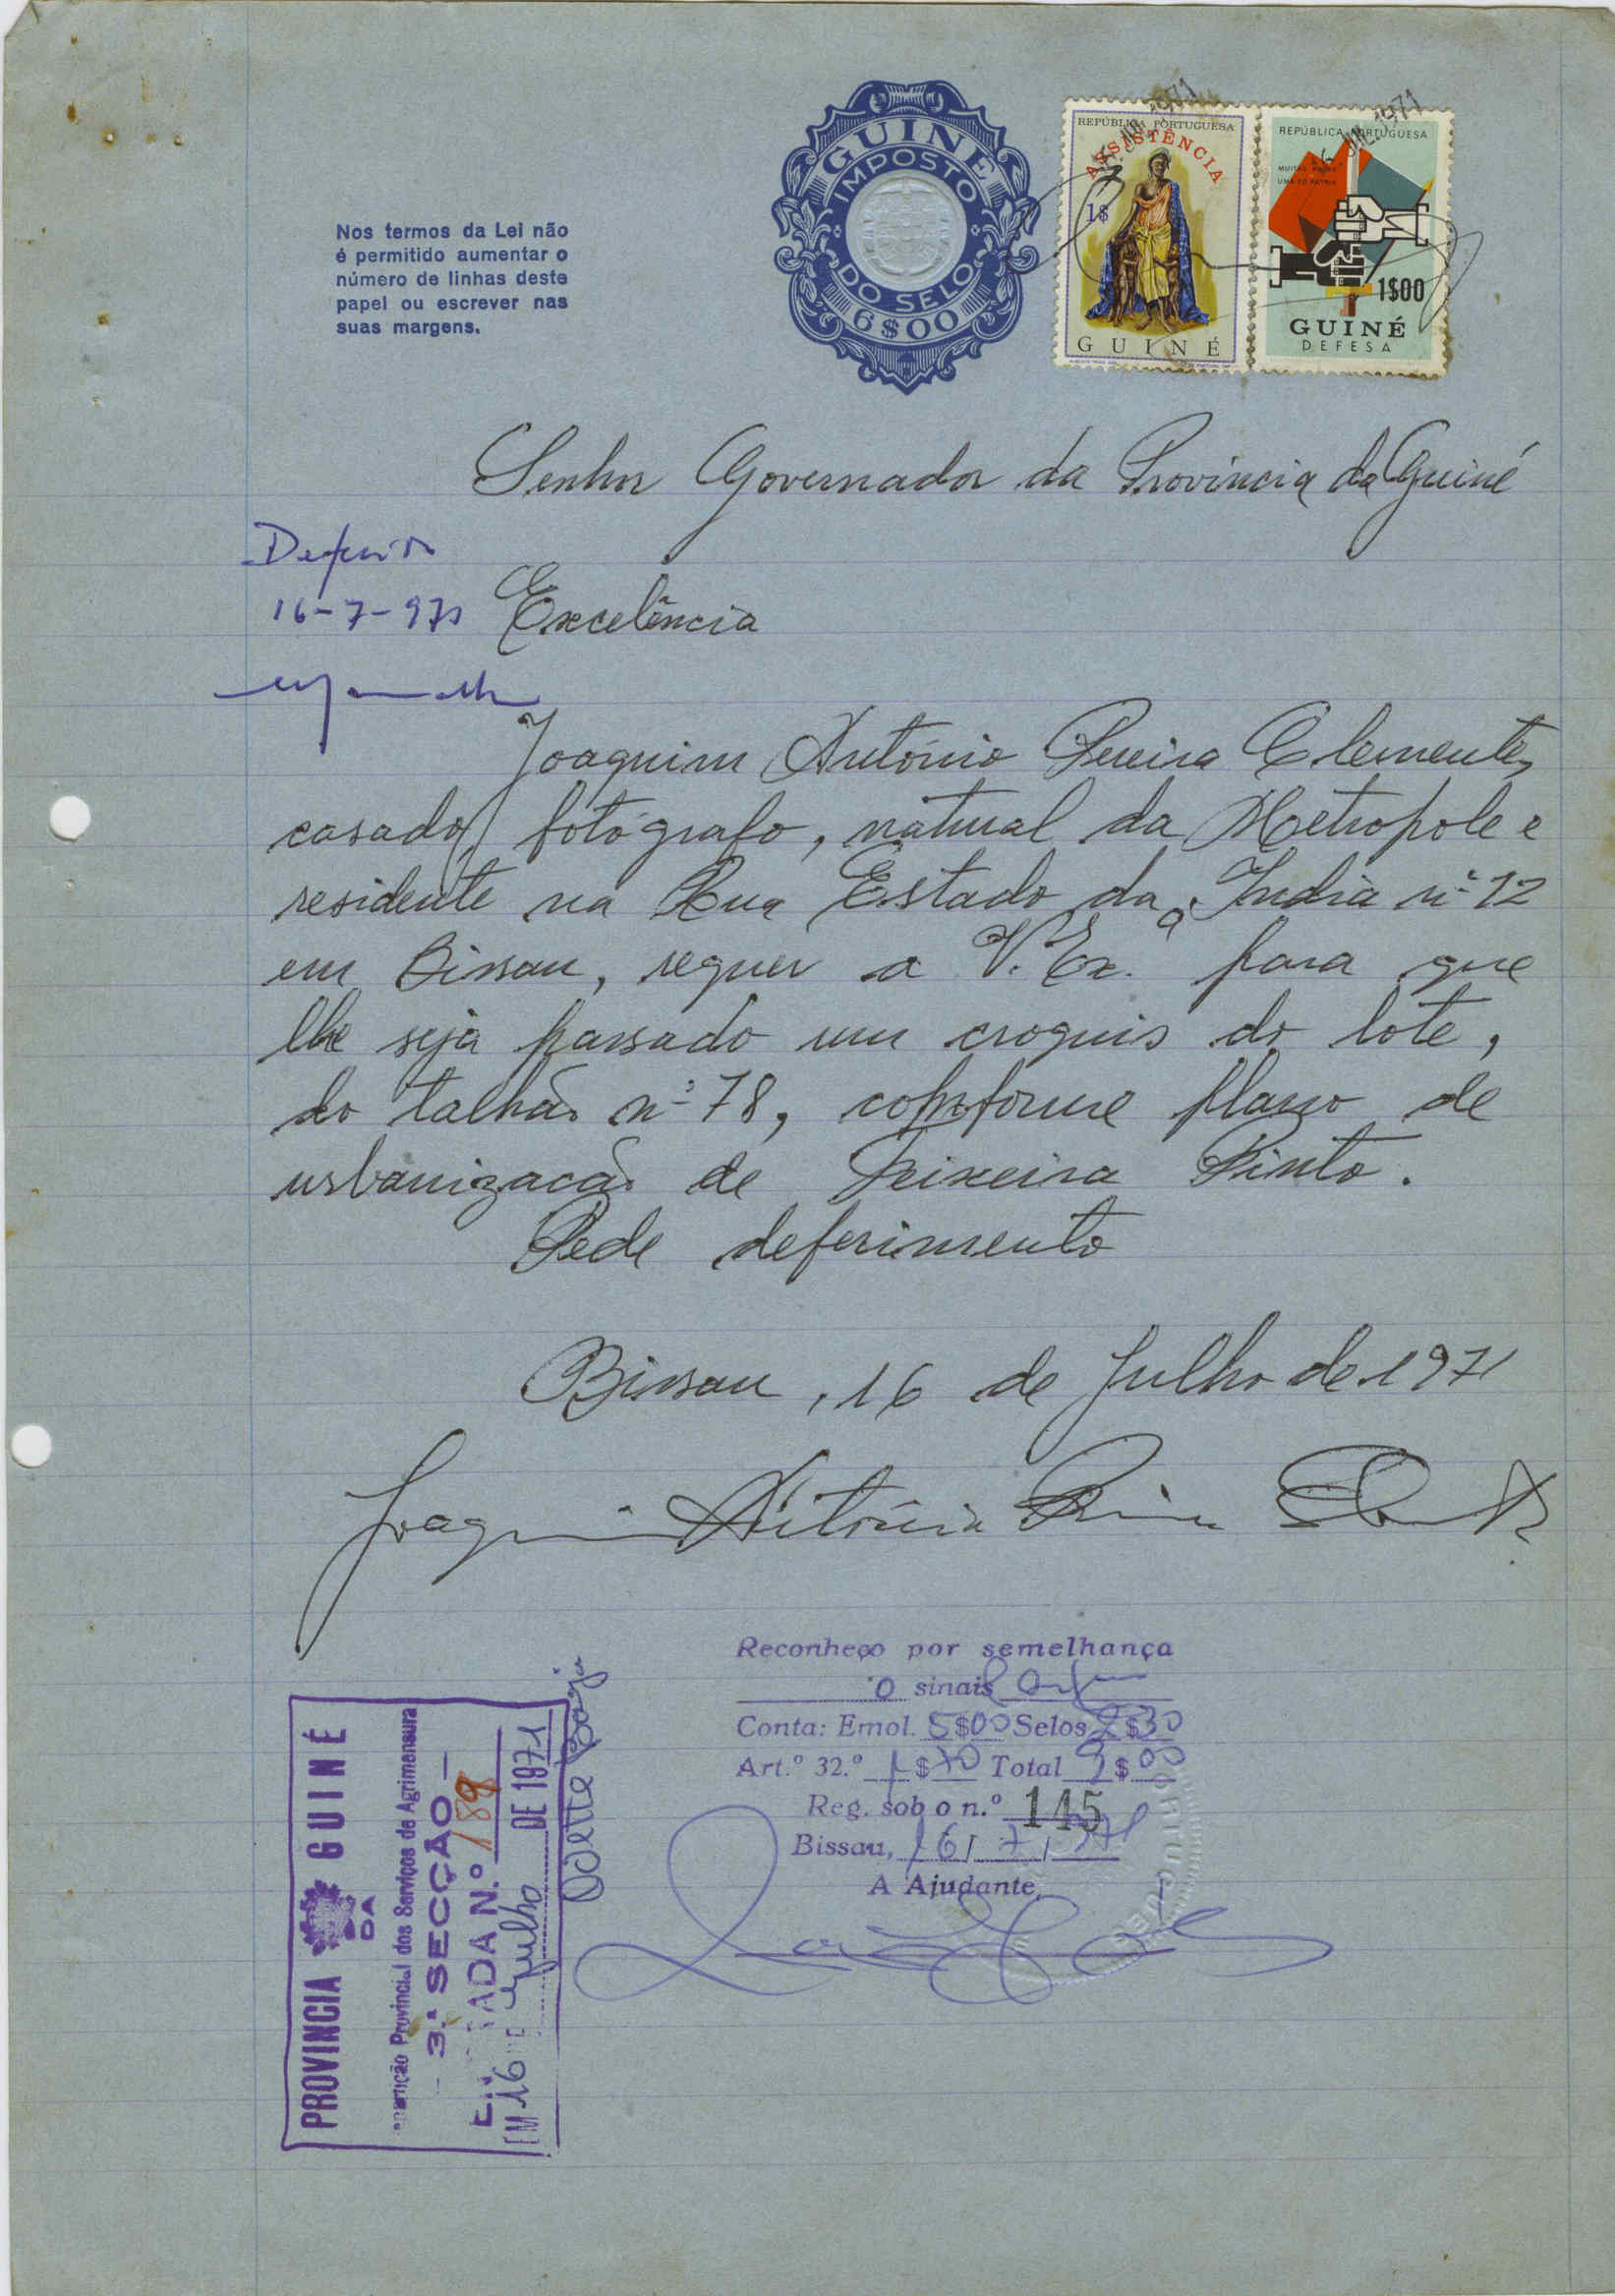 Nos termos da Lei não
é permitido aumentar o
número de linhas deste
papel ou escrever nas
suas margens.
GUINÉ
IMPOSTO
DO SELO
6$00
REPÚBLICA PORTUGUESA
ASSISTÊNCIA
1$
GUINÉ
REPÚBLICA PORTUGUESA
UMA SÓ PÁTRIA
1$00
GUINÉ
DEFESA
Senhor Governador da Província da Guiné
Deferido
16-7-971
Excelência
Joaquim António Pereira Clemente,
casado, fotógrafo, natural da Metropole e
residente na Rua Estado da India nº 12
em Bissau, requer a V. Ex.ª para que
lhe seja passado um croquis do lote,
do talhão nº 78, conforme plano de
urbanizacão de Teixeira Pinto.
Pede deferimento
Bissau, 16 de Julho de 1971
Joaquim António Pereira Clemente
Reconheço por semelhança
o sinais
Conta: Emol. 5$00 Selos 2$30
Art.º 32.º 1$70 Total 9$00
Reg. sob o n.º 145
Bissau, 16/7/971
A Ajudante,
PROVINCIA DA GUINÉ
Provincial dos Serviços de Agrimensura
3.ª SECÇÃO
ENTRADA N.º 189
EM 16 de Julho DE 1971
Odette